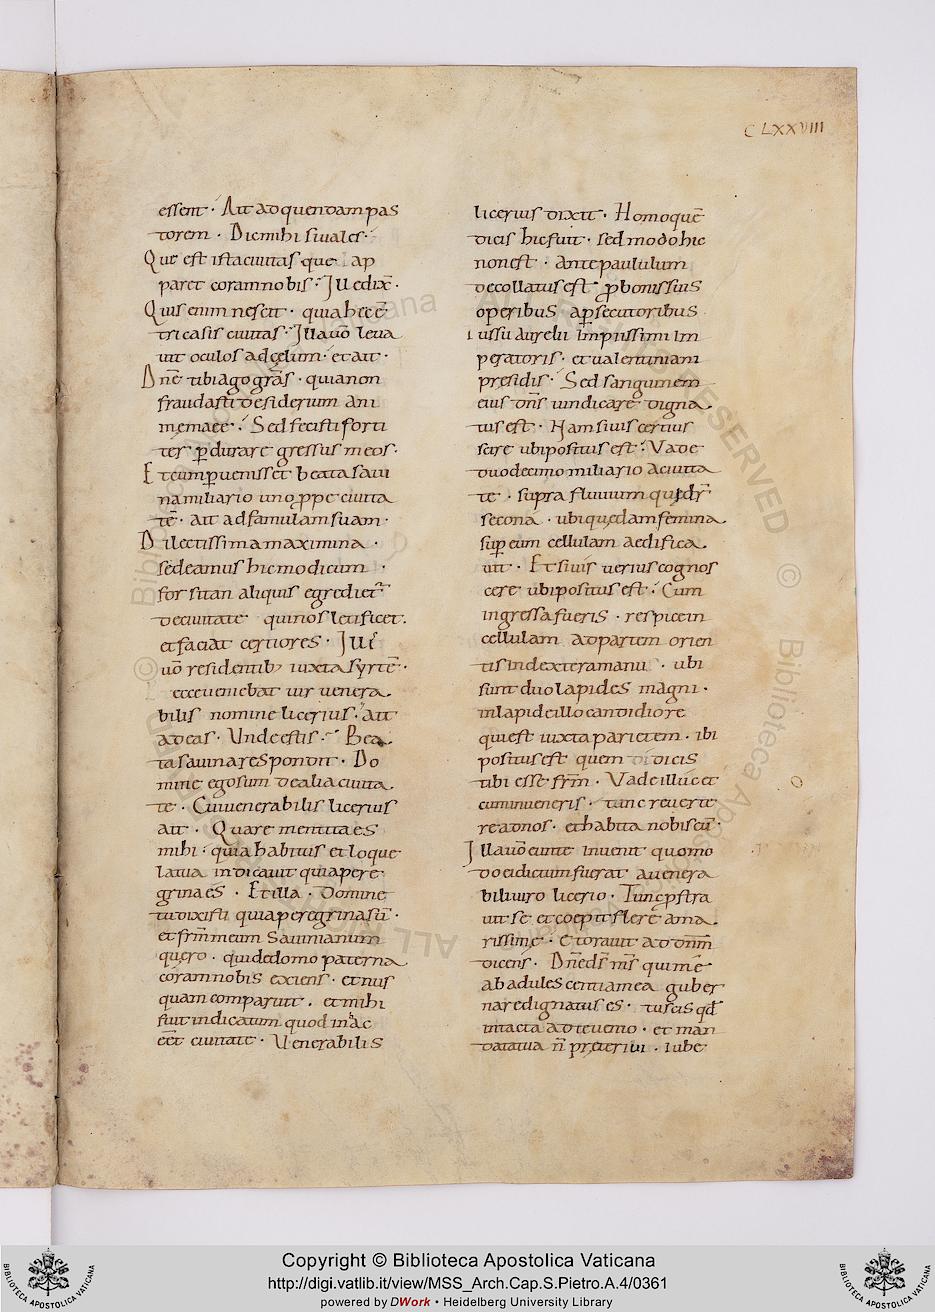 CLXXVIII
essent · Ait ad quendam pas
torem · Dic mihi si uales ·
Que est ista ciuitas que ap
paret coram nobis · Ille dix̄ ·
Quis enim nescit · quia hec ē
tricasis ciuitas · Illa uō leua
uit oculos ad celum · et ait ·
Dn̄e tibi ago grās · quia non
fraudasti desiderium ani
mę meae · Sed fecisti forti
ter ꝑdurare gressus meos ·
Et cum ꝑuenisset beata saui
na miliario uno ꝓpe ciuita
tē · ait ad famulam suam ·
Dilectissima maximina ·
sedeamus hic modicum ·
forsitan aliquis egrediet᷑
de ciuitate qui nos letificet ·
et faciat certiores · Ill
uō residentib; iuxta syrtē ·
ecce ueniebat uir uenera
bilis nomine licerius · ait
ad eas · Unde estis · Bea
ta sauina respondit · Do
mine ego sum de alia ciuita
te · Cui uenerabilis licerius
ait · Quare mentita es
mihi · quia habitus et loque
la tua indicauit quia pere
grina es · Et illa · Domine
tu dixisti quia peregrina sū ·
et frm̄ meum Sauinianum
quero · qui de domo paterna
coram nobis exiens · et nus
quam comparuit · et mihi
fuit indicatum quod in hac
eēt ciuitate · Uenerabilis
licerius dixit · Homo quē
dicis hic fuit · sed modo hic
non est · Ante paululum
decollatus est ꝓ bonis suis
operibus a ꝑsecutoribus
iussu aurelii impiissimi im
peratoris · et ualentiniani
presidis · Sed sanguinem
eius dn̄s uindicare digna
tus est · Nam si uis certius
scire ubi positus est · Vade
duodecimo miliario a ciuita
te · supra fluuium qui dr̄
secona · ubi quędam femina
suꝑ eum cellulam aedifica
uit · Et si uis uerius cognos
cere ubi positus est · Cum
ingressa fueris · respice in
cellulam ad partem orien
tis in dextera manu · ubi
sunt duo lapides magni ·
in lapide illo candidiore
qui est iuxta parietem · ibi
positus est quem dicis
tibi esse frm̄ · Vade illuc et
cum inueneris · tunc reuerte
re ad nos · et habita nobiscū ·
Illa uō eunte inuenit quomo
do ei dictum fuerat a uenera
bili uiro licerio · Tunc ꝓstra
uit se et coepit flere ama
rissime · Et orauit ad dnm̄
dicens · Dn̄e ds̄ ms̄ qui me
ab adulescentia mea guber
nare dignatus es · tu scis qđ
intacta ad te uenio · et man
data tua ñ preteriui · iube
Copyright © Biblioteca Apostolica Vaticana
http://digi.vatlib.it/view/MSS_Arch.Cap.S.Pietro.A.4/0361
powered by DWork • Heidelberg University Library